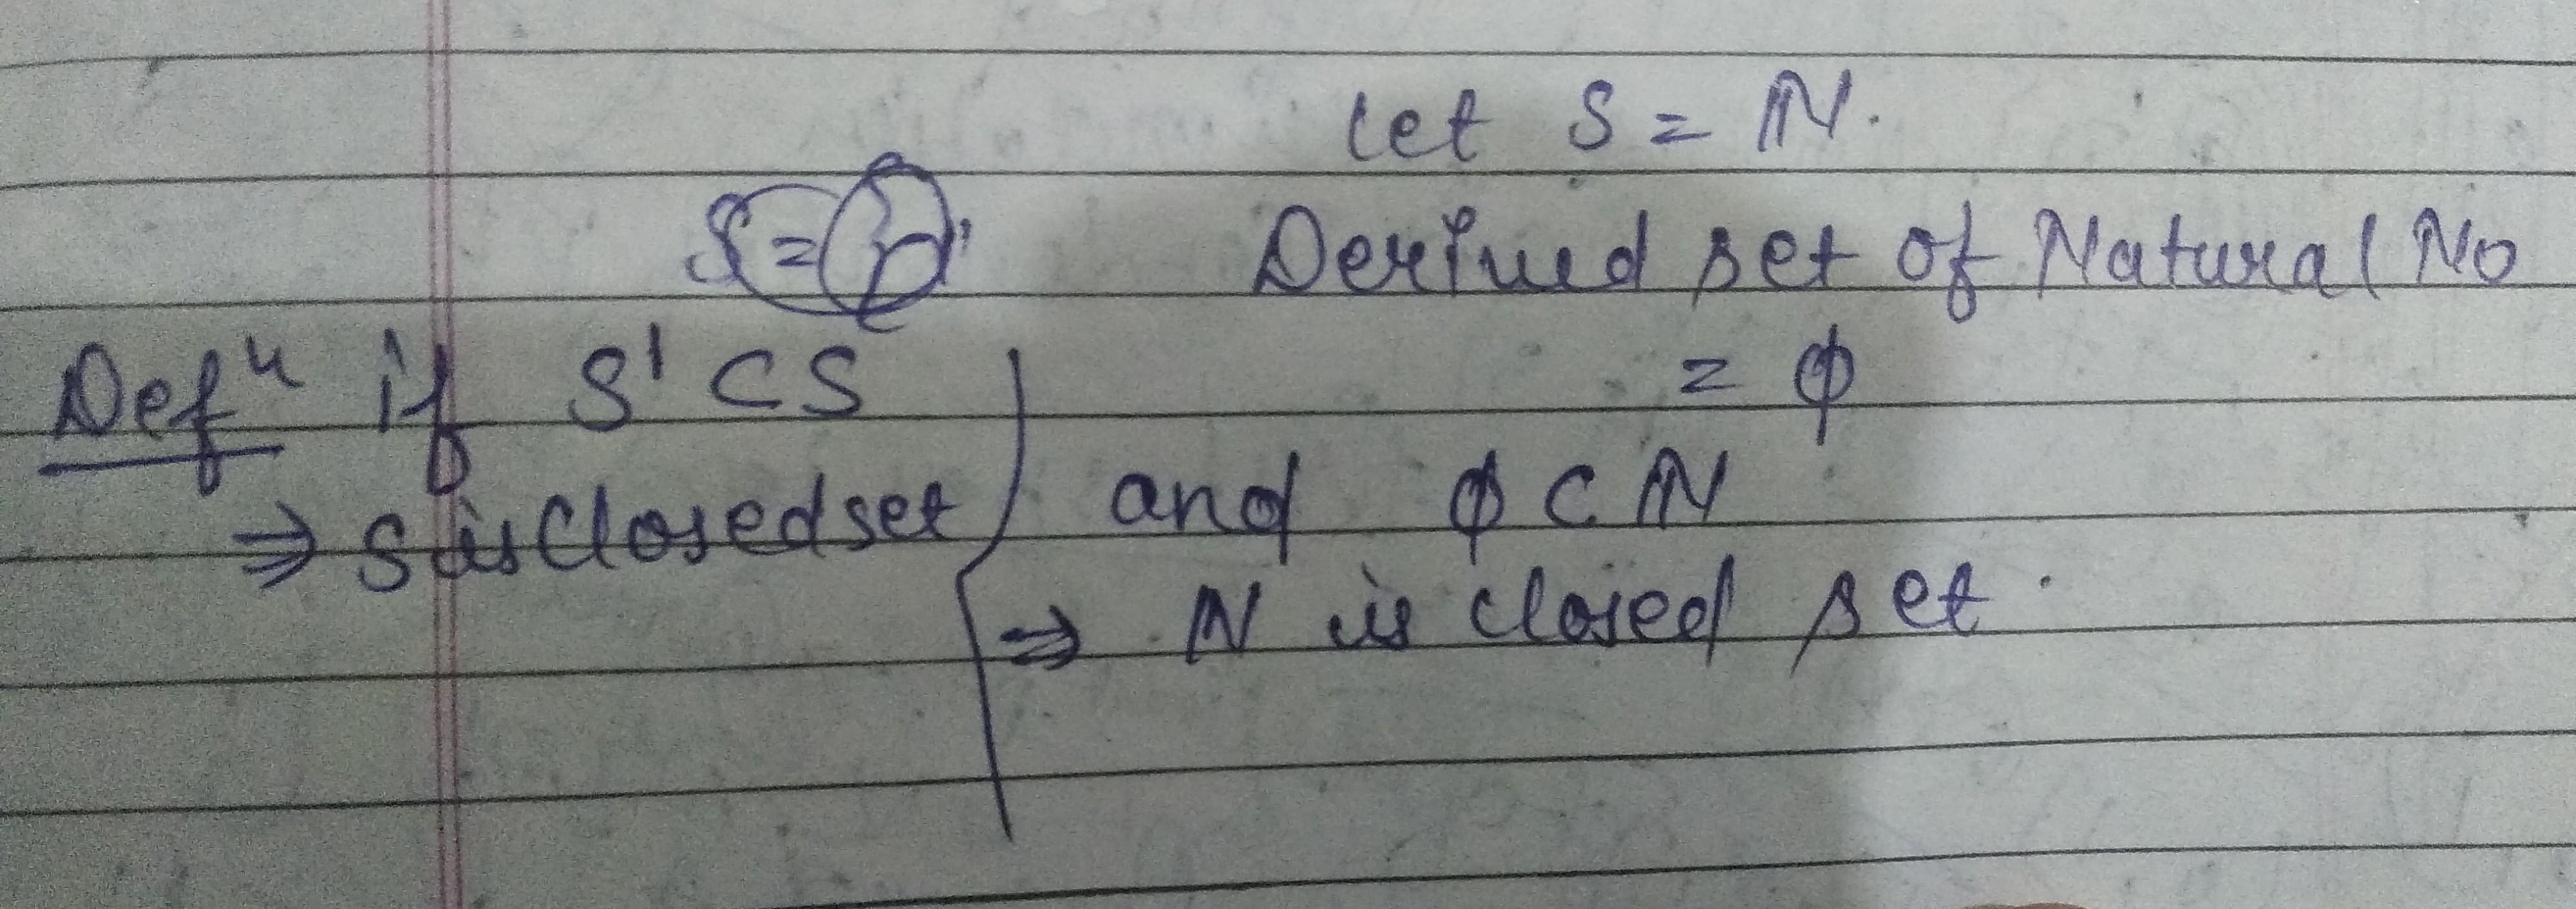 Let S = ℕ.
Derived set of Natural No
= ϕ
Defⁿ if S' ⊂ S
⇒ S is Closed set
and ϕ ⊂ ℕ
⇒ N is closed set.